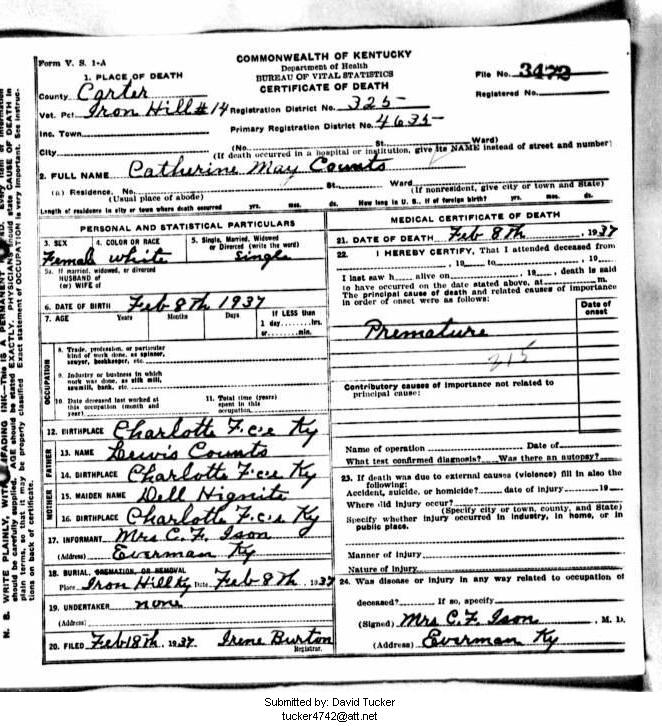 Form V. S. 1-A
COMMONWEALTH OF KENTUCKY
Department of Health
BUREAU OF VITAL STATISTICS
CERTIFICATE OF DEATH
File No. 3472
Registered No.
1. PLACE OF DEATH
County Carter
Vot. Pct. Iron Hill #14 Registration District No. 325
Inc. Town Primary Registration District No. 4635
City (No. St. Ward)
(If death occurred in a hospital or institution, give its NAME instead of street and number)
2. FULL NAME Catherine May Counts
(a) Residence. No. St. Ward
(Usual place of abode) (If nonresident, give city or town and State)
Length of residence in city or town where death occurred yrs. mos. ds. How long in U. S., if of foreign birth? yrs. mos. ds.
PERSONAL AND STATISTICAL PARTICULARS
3. SEX 4. COLOR OR RACE 5. Single, Married, Widowed or Divorced (write the word)
Female White Single
5a. If married, widowed, or divorced
HUSBAND of
(or) WIFE of
6. DATE OF BIRTH Feb 8th 1937
7. AGE Years Months Days If LESS than
1 day, hrs.
or min.
OCCUPATION
8. Trade, profession, or particular
kind of work done, as spinner,
sawyer, bookkeeper, etc.
9. Industry or business in which
work was done, as silk mill,
sawmill, bank, etc.
10. Date deceased last worked at
this occupation (month and
year)
11. Total time (years)
spent in this
occupation
12. BIRTHPLACE Charlotte F.c.e Ky
FATHER
13. NAME Lewis Counts
14. BIRTHPLACE Charlotte F.c.e Ky
MOTHER
15. MAIDEN NAME Dell Hignite
16. BIRTHPLACE Charlotte F.c.e Ky
17. INFORMANT Mrs C. F. Ison
(Address) Everman Ky
18. BURIAL, CREMATION, OR REMOVAL
Place Iron Hill Ky Date Feb 8th, 1937
19. UNDERTAKER none
(Address)
20. FILED Feb 18th, 1937 Irene Burton
Registrar.
MEDICAL CERTIFICATE OF DEATH
21. DATE OF DEATH Feb 8th, 1937
22. I HEREBY CERTIFY, That I attended deceased from
, 19 to , 19
I last saw h alive on , 19 , death is said
to have occurred on the date stated above, at m.
The principal cause of death and related causes of importance
in order of onset were as follows:
Date of
onset
Premature
215
Contributory causes of importance not related to
principal cause:
Name of operation Date of
What test confirmed diagnosis? Was there an autopsy?
23. If death was due to external causes (violence) fill in also the
following:
Accident, suicide, or homicide? date of injury 19
Where did injury occur?
(Specify city or town, county, and State)
Specify whether injury occurred in industry, in home, or in
public place.
Manner of injury
Nature of injury
24. Was disease or injury in any way related to occupation of
deceased? If so, specify
(Signed) Mrs C. F. Ison, M. D.
(Address) Everman Ky
N. B. WRITE PLAINLY, WITH UNFADING INK—THIS IS A PERMANENT
should be carefully supplied. AGE should be stated EXACTLY. PHYSICIANS should state CAUSE OF DEATH in
plain terms, so that it may be properly classified. Exact statement of OCCUPATION is very important. See instruc-
tions on back of certificate.
Submitted by: David Tucker
tucker4742@att.net